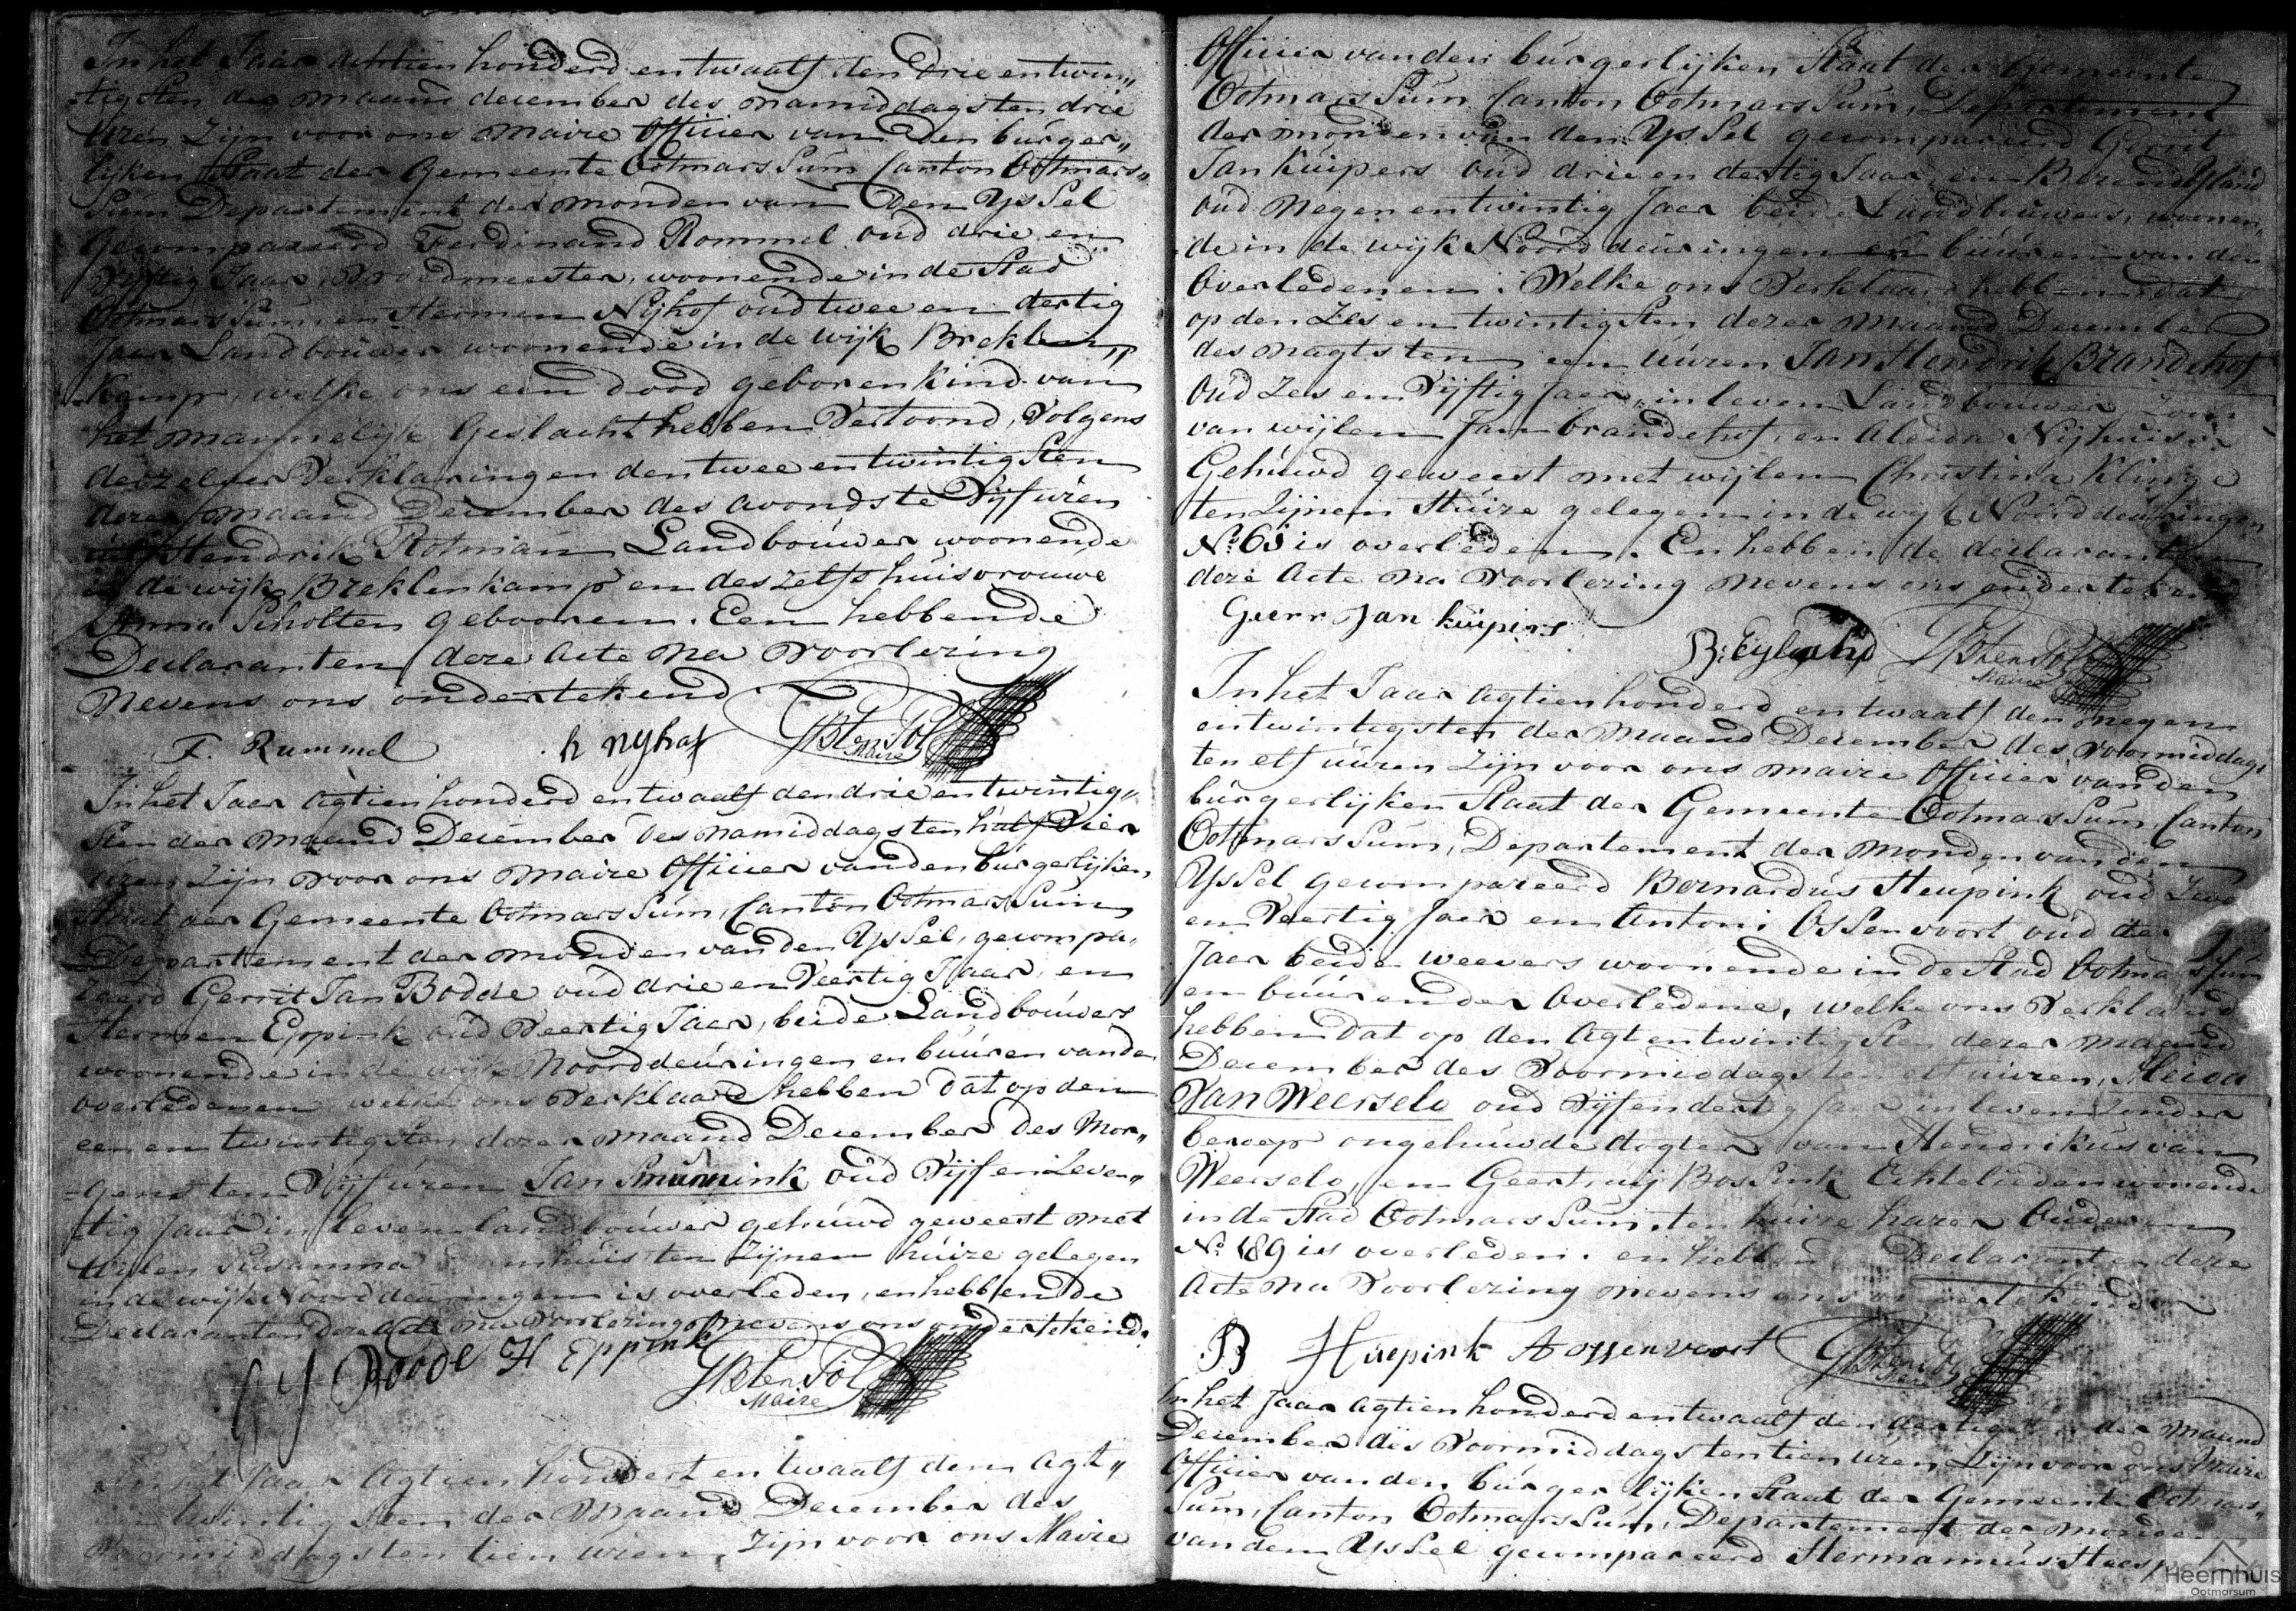 In het Jaar achtien honderd en twaalf den drie en twin„
tigsten der maand december des namiddags ten drie
uren Zijn voor ons Maire Officier van den burger„
lijken Staat der Gemeente OotmarsSum Canton Ootmars„
Sum Departement der monden van den YsSel
gecompareerd Ferdinand Rommel oud drie en
Vijftig Jaar, woonende in de Stad
OotmarsSum, en Hermen Nijhof oud twee en dertig
Jaar Landbouwer woonende in de wijk Breklen„
kamp, welke ons een dood geboren Kind van
het mannelijk Geslacht hebben Vertoond, Volgens
derzelver Verklaringen den twee en twintigsten
dezer maand December des avonds te Vijf uren
uit Hendrik Rotman Landbouwer woonende
in de wijk Breklenkamp en des zelfs huisvrouwe
Anna Scholten gebooren. Een hebben de
Declaranten deze Acte Na Voorlezing
Nevens ons ondertekend
F. Rummel h nyhof GB ten Pol
Maire
In het Jaer Agtien honderd en twaalf den drie en twintig„
Sten der Maand December des namiddags ten half Vier
Uren Zijn voor ons Maire Officier van den burgerlijken
Staat der Gemeente OotmarsSum, Canton OotmarsSum
Departement der monden van den YsSel, gecompa„
reerd Gerrit Jan Bodde oud drie en Veertig Jaar, en
Hermen Eppink oud Veertig Jaer, beide Landbouwers
woonende in de wijk Noorddeuringen en buuren van de
overledenen welke ons Verklaard hebben dat op den
een en twintigsten dezer maand December des Mor„
gens ten Vijf uren Jan oud Vijf en Zeven„
tig Jaar in leven landbouwer gehuwd geweest met
wylen Susanna ten Zijnen huize gelegen
in de wijk Noorddeuringen is overleden, en hebben de
Declaranten deze Acte na Voorlezing Nevens ons ondertekend.
GJ Bodde H Eppink GB ten Pol
Maire
In het Jaar Agtien hondert en twaalf den Agt„
en twintigsten der Maand December des
Voormiddags ten tien uren, Zijn voor ons Maire
Officier van den burgerlijken Staat der Gemeente
OotmarsSum Canton OotmarsSum, Departement
der monden van den YsSel gecompareerd Gerrit
Jan Kuipers oud drie en dertig Jaar, en Berend Eyland
oud Negen en twintig Jaer beide Landbouwers, woonen„
de in de wijk Noorddeuringen en buuren van den
Overledenen. Welke ons Verklaard hebben dat
op den Zes en twintigsten dezer maand December
des nagts ten een uuren Jan Hendrik Brandehof
Oud Zes en Vijftig Jaer, in leven Landbouwer zoon
van wijlen Jan brandehof, en Aleida Nijhuis
Gehuwd geweest met wijlen Christina Klinge
ten Zijnen Huize gelegen in de wijk Noorddeuringen
No. 65 is overleden. En hebben de declaranten
deze Acte Na Voorlezing Nevens ons ondertekend
Gerr Jan kuipers B: Eyland GB ten Pol
Maire
In het Jaar Agtien honderd en twaalf den Negen
en twintigsten der Maand December des Voormiddags
ten elf uuren Zijn voor ons Maire Officier van den
burgerlijken Staat der Gemeente OotmarsSum, Canton
OotmarsSum, Departement der Monden van den
YsSel gecompareerd Bernardus Heupink oud Twe
en Veertig Jaer en Antoni OsSenvoort oud
Jaer beide weevers woonende in de Stad OotmarsSum
en buuren der Overledene, welke ons Verklaard
hebben dat op den Agt en twintigsten dezer Maand
December des Voormiddags ten elf uuren, Aleida
Van Weerselo oud Vijf en dertig Jaer in leven zonder
beroep ongehuwde dogter van Hendrikus van
Weerselo, en Geertruij BosSink Echtelieden wonende
in de Stad OotmarsSum, ten huize harer Ouderen
No. 189 is overleden. en hebben de Declaranten deze
Acte Na Voorlezing nevens ons ondertekend
B Huepink A ossenvoort GB ten Pol
In het Jaar Agtien honderd en twaalf den dertigsten der Maand
December des Voormiddags ten tien uren Zijn voor ons Maire
Officier van den burgerlijken Staat der Gemeente Ootmars„
Sum, Canton OotmarsSum, Departement der Monden
van den YsSel gecompareerd Hermannus
Heemhuis
Ootmarsum